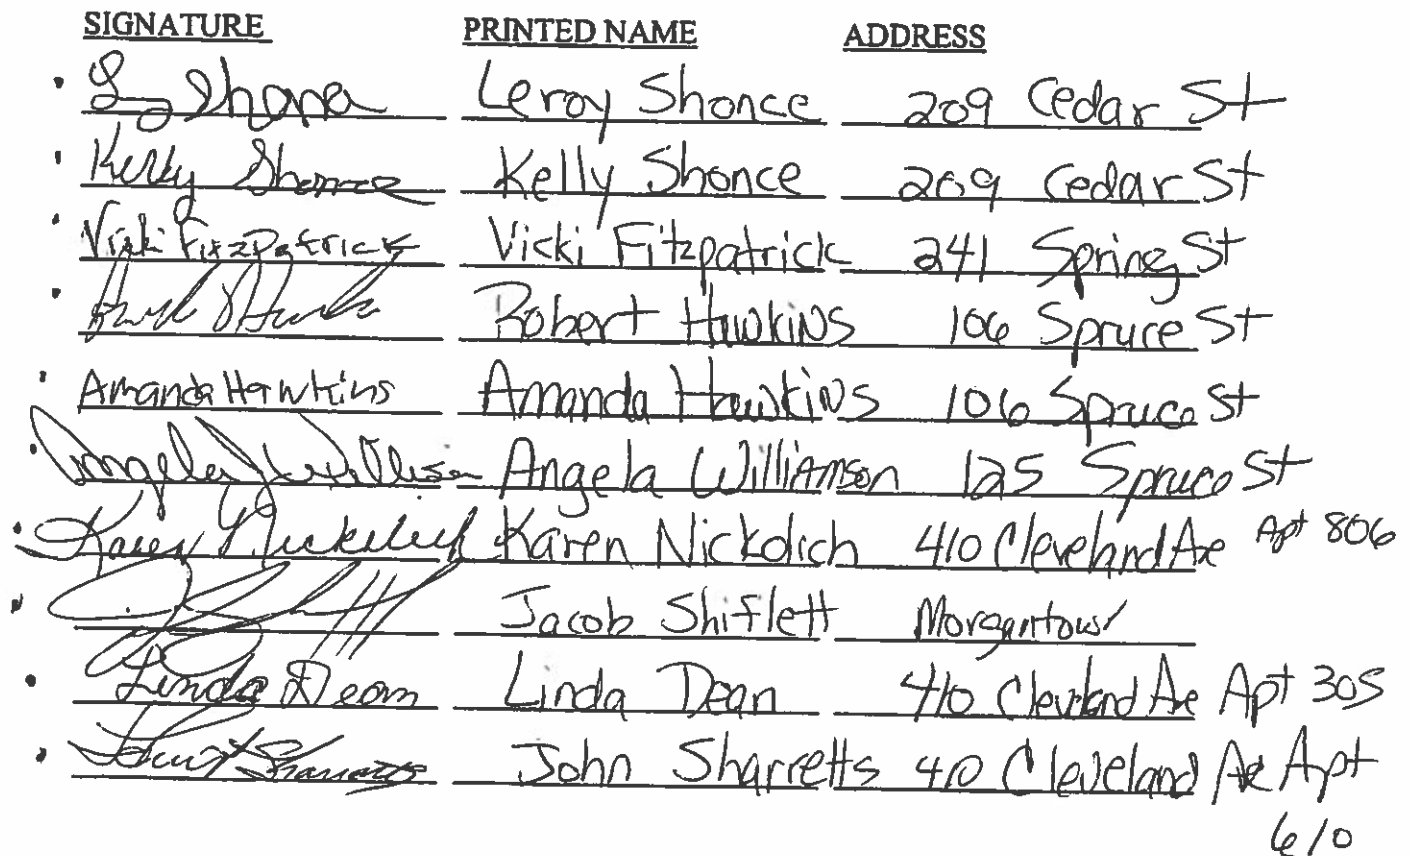 SIGNATURE PRINTED NAME ADDRESS
Leroy Shonce 209 Cedar St
Kelly Shonce Kelly Shonce 209 Cedar St
Vicki Fitzpatrick Vicki Fitzpatrick 241 Spring St
Robert Hawkins 106 Spruce St
Amanda Hawkins Amanda Hawkins 106 Spruce St
Angela Williamson 125 Spruce St
Karen Nickolich Karen Nickolich 410 Cleveland Ave Apt 806
Jacob Shiflett Morgantown
Linda Dean Linda Dean 410 Cleveland Ave Apt 305
John Sharretts 410 Cleveland Ave Apt
610